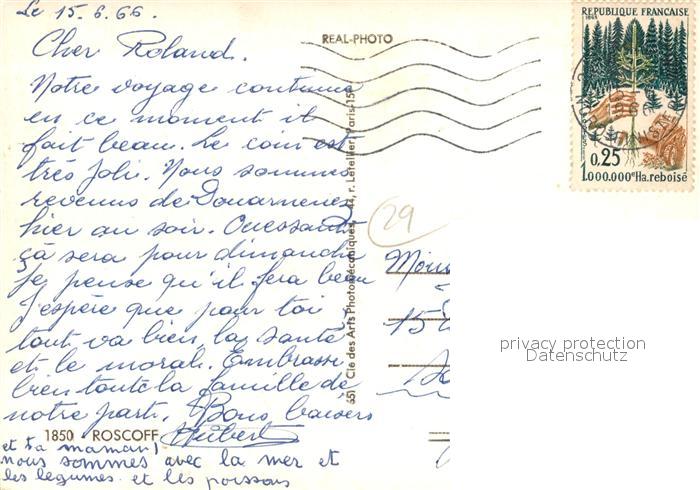 Le 15.6.66.
Cher Roland.
Notre voyage continue
en ce moment il
fait beau. Le coin est
très jolie. Nous sommes
revenus de Douarnenez
hier au soir. Ouessant
çà sera pour dimanche
Je pense qu'il fera beau
J'espère que pour toi
tout va bien, la santé
et le moral. Embrasse
bien toute la famille de
notre part. Bons baisers
Hubert
et ta maman,
nous sommes avec la mer et
les légumes et les poissons
1850 - ROSCOFF
REAL-PHOTO
Cie des Arts Photomécaniques, 44, r. Letellier, Paris-15e
29
REPUBLIQUE FRANCAISE
1965
0.25
1.000.000e Ha. reboisé
15
privacy protection
Datenschutz